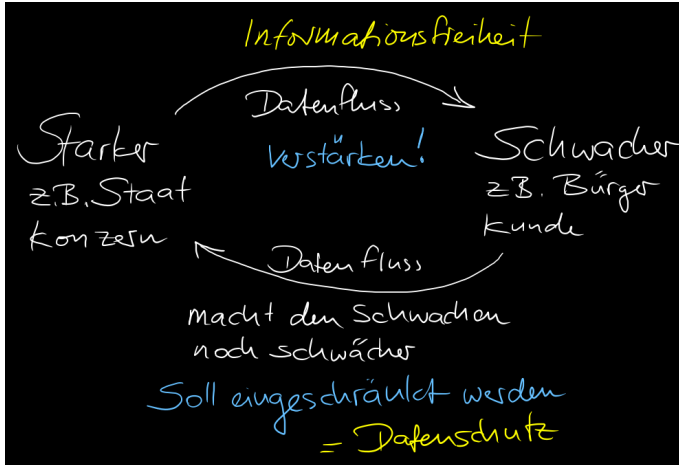 Informationsfreiheit
Datenfluss
verstärken!
Starker
z.B. Staat
Konzern
Schwacher
z.B. Bürger
Kunde
Datenfluss
macht den Schwachen
noch schwächer
Soll eingeschränkt werden
= Datenschutz